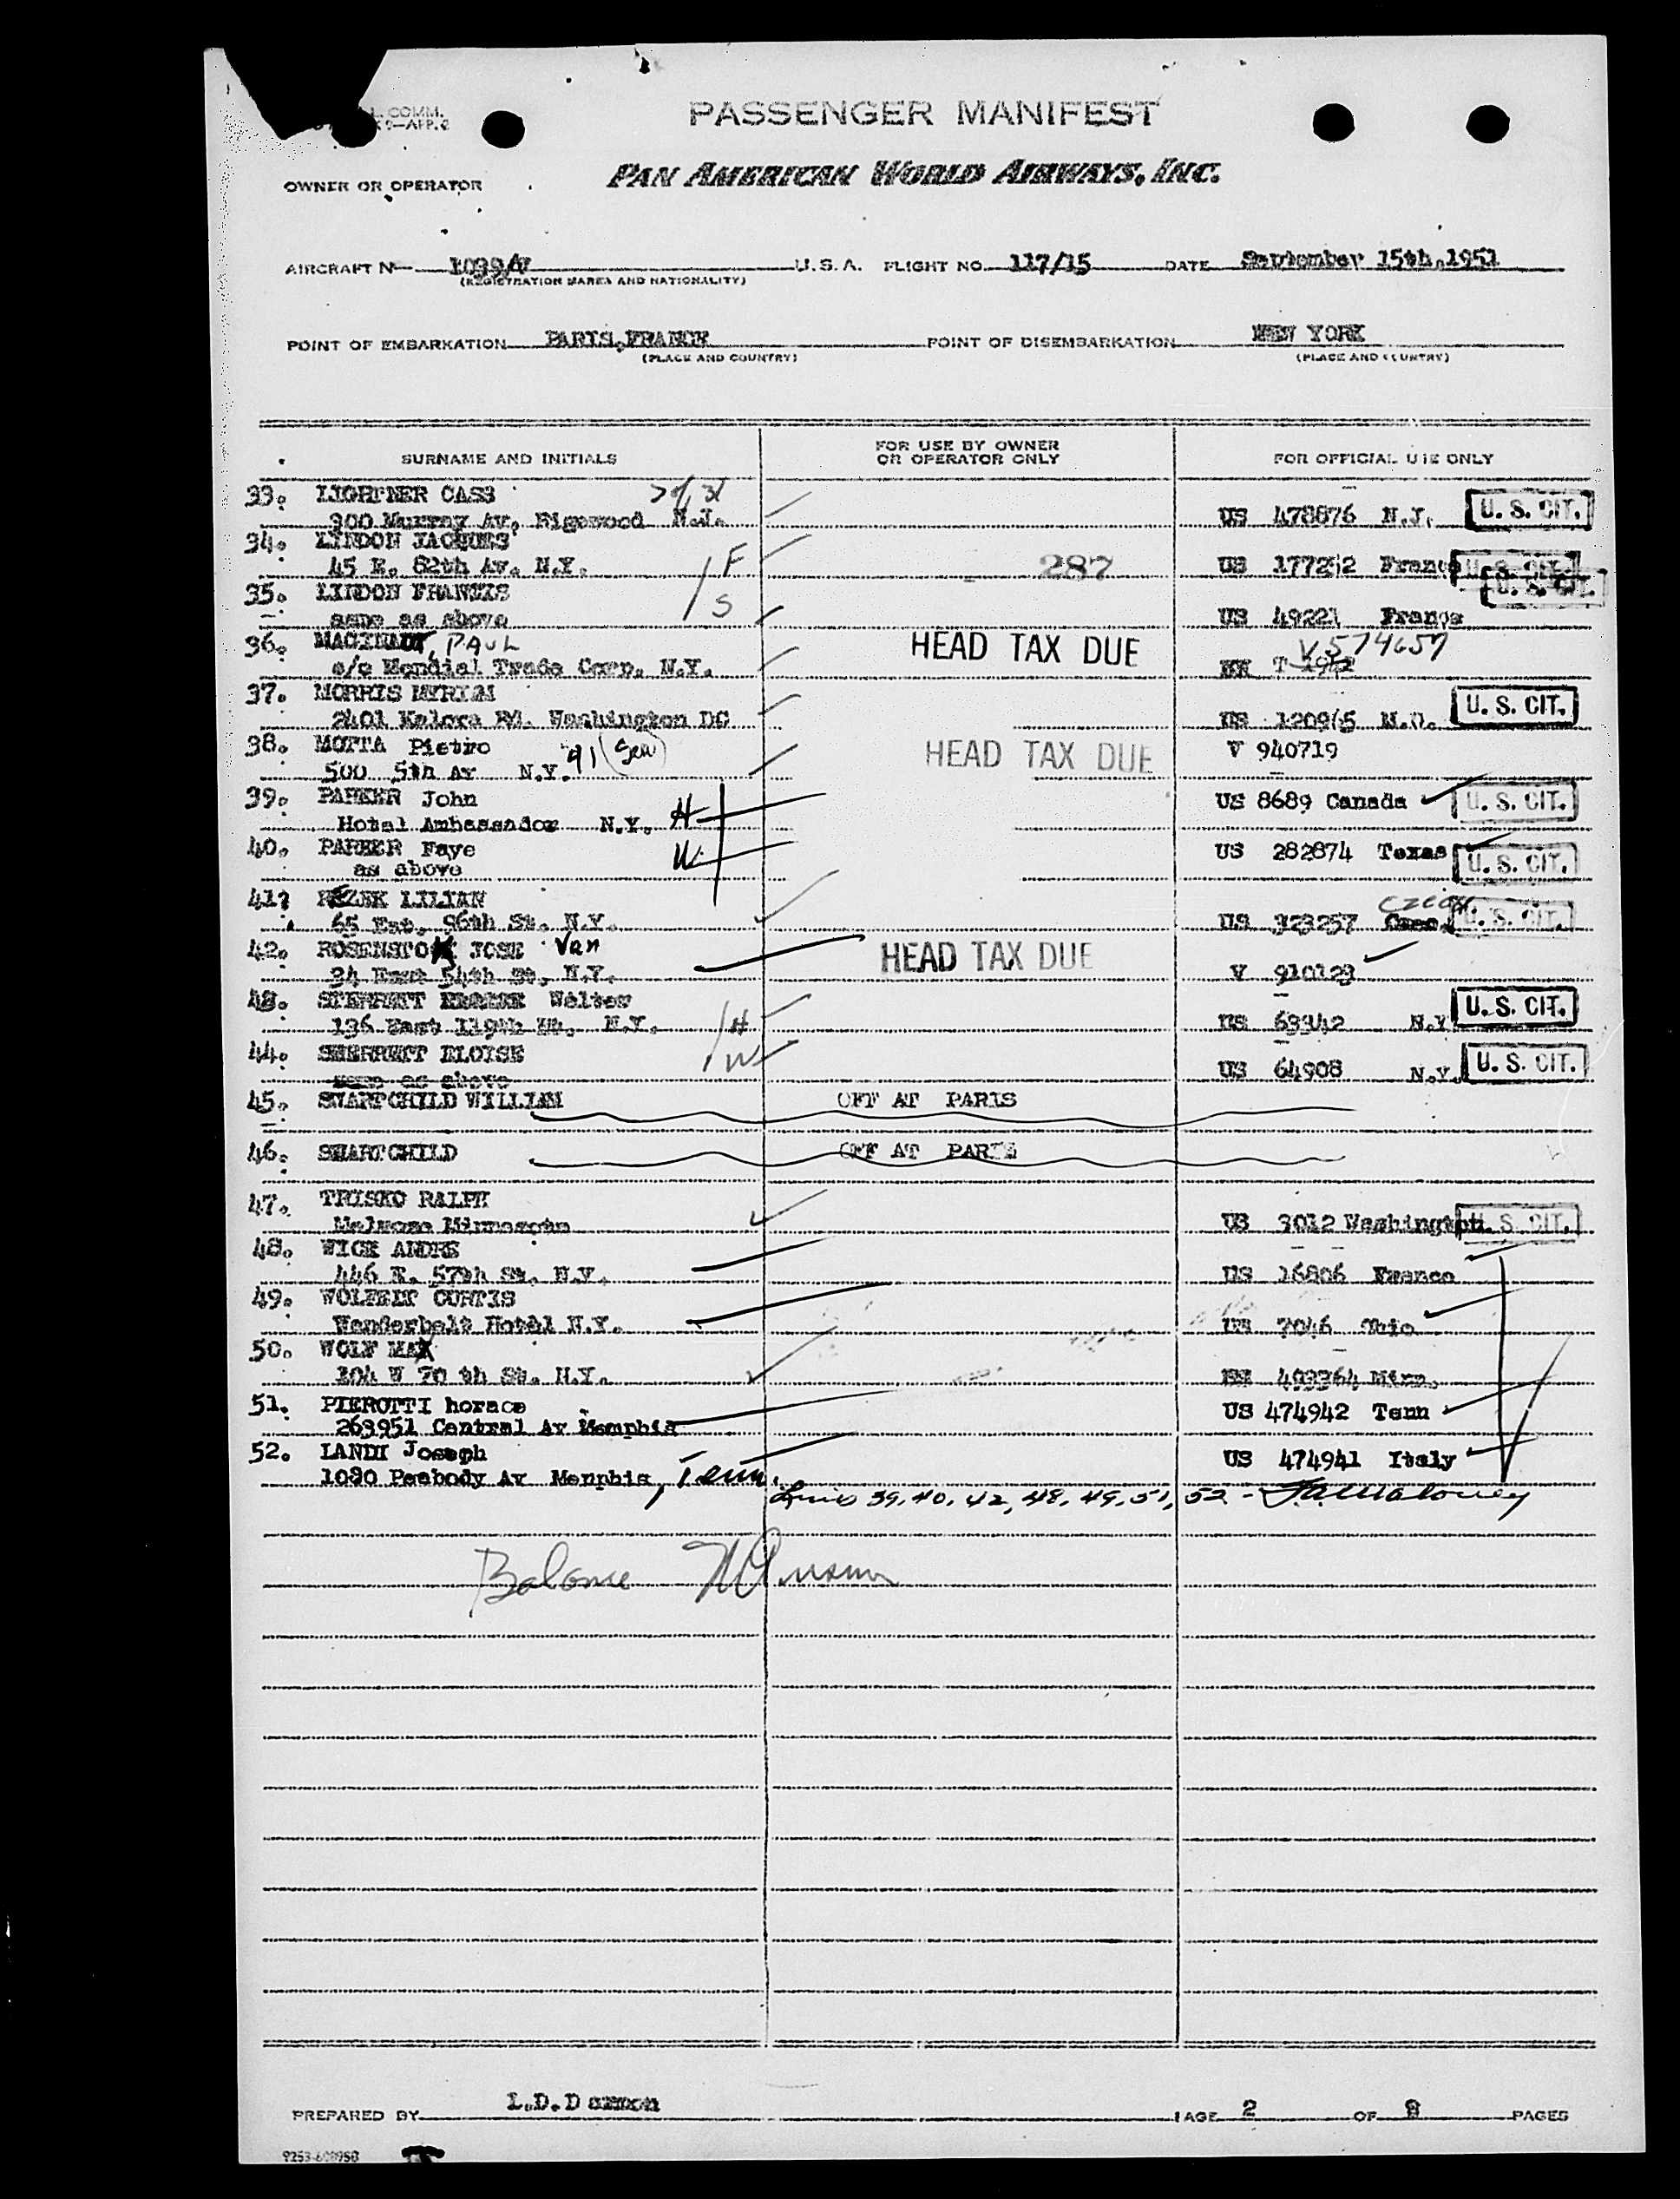 L. COMM.
PASSENGER MANIFEST
OWNER OR OPERATOR
PAN AMERICAN WORLD AIRWAYS, INC.
AIRCRAFT Nº 1039/V U.S.A. FLIGHT NO. 117/15 DATE September 15th, 1951
(REGISTRATION MARKS AND NATIONALITY)
POINT OF EMBARKATION PARIS, FRANCE POINT OF DISEMBARKATION NEW YORK
(PLACE AND COUNTRY) (PLACE AND COUNTRY)
SURNAME AND INITIALS FOR USE BY OWNER OR OPERATOR ONLY FOR OFFICIAL USE ONLY
33. LIGHTNER CASS
300 Murray Av, Rigewood N.J. US 478876 N.J. U. S. CIT.
34. LINDON JACQUES F
45 E. 82th Av. N.Y. 287 US 177212 France U. S. CIT.
35. LINDON FRANCIS S
same as above US 49221 France U. S. CIT.
36. , PAUL HEAD TAX DUE V 574657
c/o Mondial Trade Corp. N.Y.
37. MORRIS MYRIAM
2401 Kalora Rd. Washington DC US 120965 M.O. U. S. CIT.
38. MOTTA Pietro HEAD TAX DUE V 940719
500 5th Av N.Y.
39. PARKER John US 8689 Canada U. S. CIT.
Hotel Ambassador N.Y. H
40. PARKER Faye W US 282874 Texas U. S. CIT.
as above
41. LILIAN
65 Est, 96th St. N.Y. US 323257 U. S. CIT.
42. ROSENSTOK JOSE Van HEAD TAX DUE
34 East 54th St. N.Y. V 910123
43. Walter
136 East 119th St. N.Y. H US 63342 N.Y. U. S. CIT.
44. ELOISE W
same as above US 64908 N.Y. U. S. CIT.
45. SWARTCHILD WILLIAM OFF AT PARIS
46. SWARTCHILD OFF AT PARIS
47. TRISKO RALPH
Melrose Minnesota US 3012 Washington U. S. CIT.
48. WICK ANDRE
446 E. 57th St. N.Y. US 16806 France
49. CURTIS
Wanderbelt Hotel N.Y. US 7046
50. WOLF MAX
104 W 70 th St. N.Y. 493364
51. PIEROTTI horace US 474942 Tenn
263951 Central Av Memphis
52. LANDI Joseph US 474941 Italy
1030 Peabody Av Memphis, Tenn.
Lines 39, 40, 42, 48, 49, 51, 52 -
Balance
PREPARED BY L.D.D PAGE 2 OF PAGES